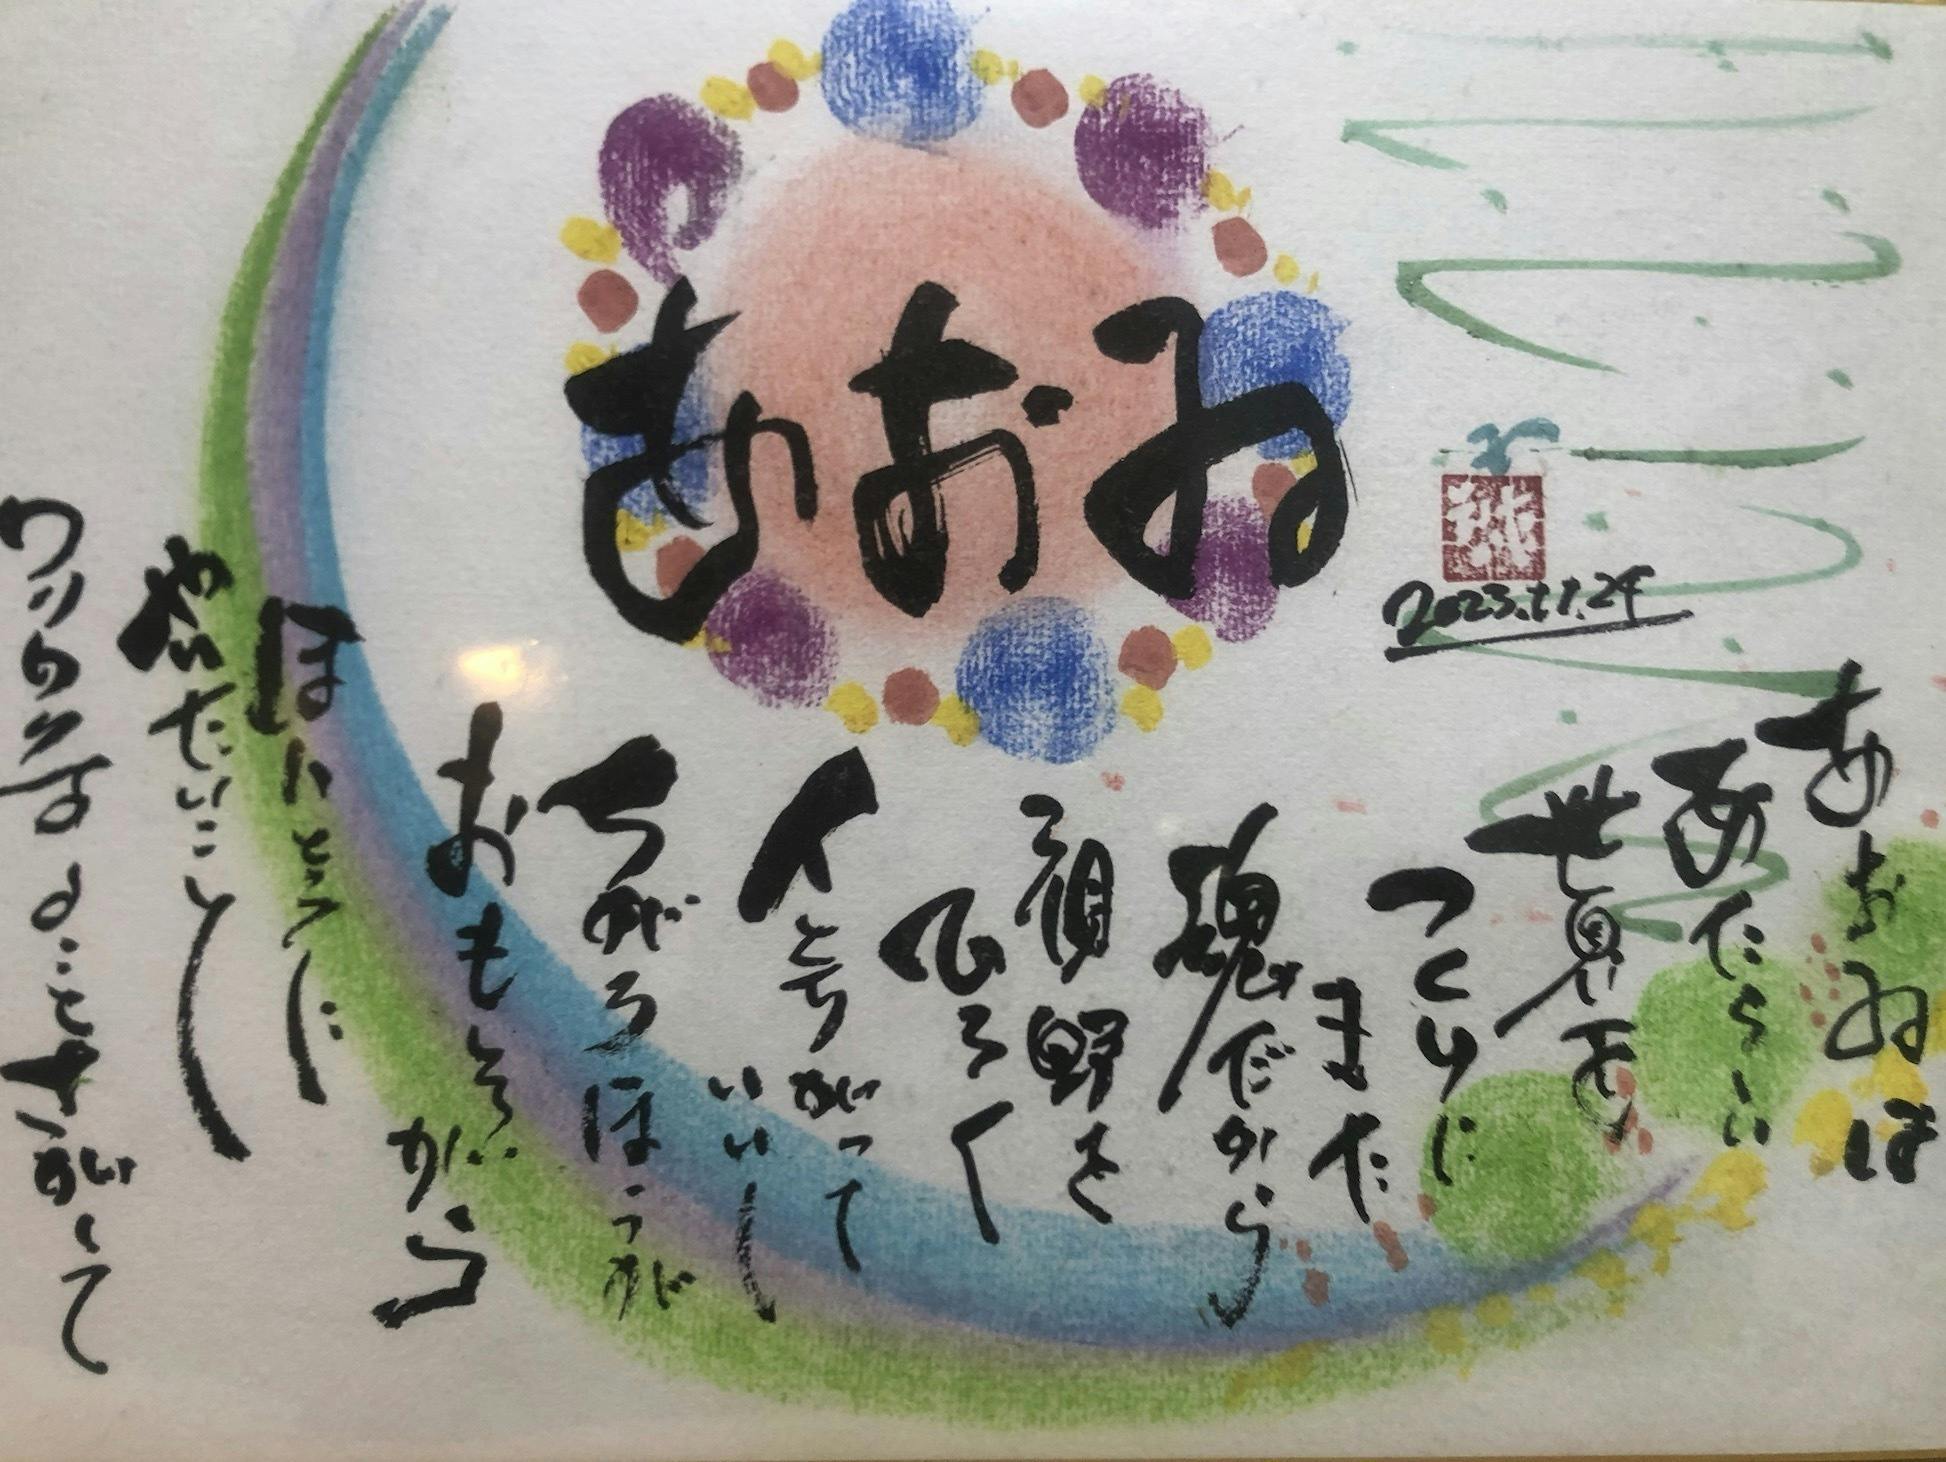 あおね
2023.11.24
あおねは
あたらしい
世界を
つくりに
きた
魂だから
視野を
ひろく
人とちがって
いいし
ちがうほうが
おもしろい
から
ほんとうに
やりたいこと
ワクワクすることをさがして